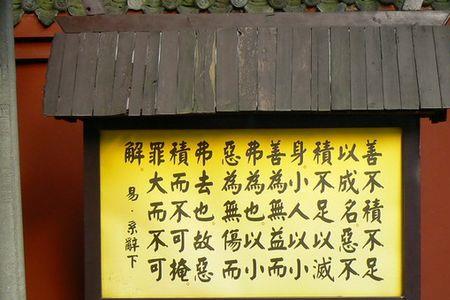 善不積不足
以成名惡不
積不足以滅
身小人以小
善為無益而
弗為也以小
惡為無傷而
弗去也故惡
積而不可掩
罪大而不可
解
易·系辭下